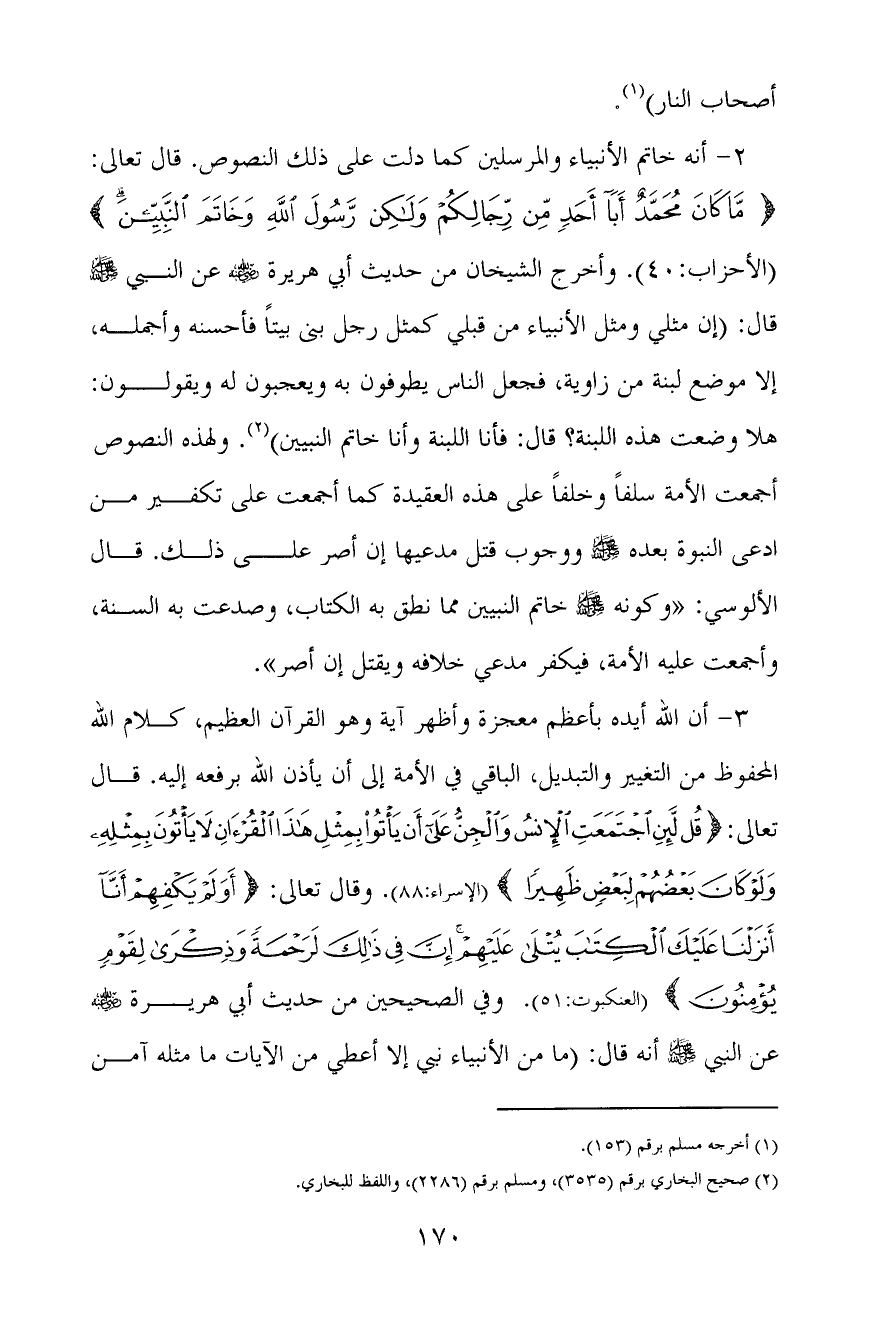 أصحاب النار)(١).
٢- أنه خاتم الأنبياء والمرسلين كما دلت على ذلك النصوص. قال تعالى:
﴿ مَّا كَانَ مُحَمَّدٌ أَبَآ أَحَدٍ مِّن رِّجَالِكُمْ وَلَٰكِن رَّسُولَ ٱللَّهِ وَخَاتَمَ ٱلنَّبِيِّـۧنَۗ ﴾
(الأحزاب:٤٠). وأخرج الشيخان من حديث أبي هريرة ﵁ عن النبي ﷺ
قال: (إن مثلي ومثل الأنبياء من قبلي كمثل رجل بنى بيتاً فأحسنه وأجمله،
إلا موضع لبنة من زاوية، فجعل الناس يطوفون به ويعجبون له ويقولون:
هلا وضعت هذه اللبنة؟ قال: فأنا اللبنة وأنا خاتم النبيين)(٢). ولهذه النصوص
أجمعت الأمة سلفاً وخلفاً على هذه العقيدة كما أجمعت على تكفير من
ادعى النبوة بعده ﷺ ووجوب قتل مدعيها إن أصر على ذلك. قال
الألوسي: «وكونه ﷺ خاتم النبيين مما نطق به الكتاب، وصدعت به السنة،
وأجمعت عليه الأمة، فيكفر مدعي خلافه ويقتل إن أصر».
٣- أن الله أيده بأعظم معجزة وأظهر آية وهو القرآن العظيم، كلام الله
المحفوظ من التغيير والتبديل، الباقي في الأمة إلى أن يأذن الله برفعه إليه. قال
تعالى: ﴿ قُل لَّئِنِ ٱجْتَمَعَتِ ٱلْإِنسُ وَٱلْجِنُّ عَلَىٰٓ أَن يَأْتُوا۟ بِمِثْلِ هَٰذَا ٱلْقُرْءَانِ لَا يَأْتُونَ بِمِثْلِهِۦ
وَلَوْ كَانَ بَعْضُهُمْ لِبَعْضٍ ظَهِيرًا ﴾ (الإسراء:٨٨). وقال تعالى: ﴿ أَوَلَمْ يَكْفِهِمْ أَنَّآ
أَنزَلْنَا عَلَيْكَ ٱلْكِتَٰبَ يُتْلَىٰ عَلَيْهِمْۚ إِنَّ فِى ذَٰلِكَ لَرَحْمَةً وَذِكْرَىٰ لِقَوْمٍ
يُؤْمِنُونَ ﴾ (العنكبوت:٥١). وفي الصحيحين من حديث أبي هريرة ﵁
عن النبي ﷺ أنه قال: (ما من الأنبياء نبي إلا أعطي من الآيات ما مثله آمن
(١) أخرجه مسلم برقم (١٥٣).
(٢) صحيح البخاري برقم (٣٥٣٥)، ومسلم برقم (٢٢٨٦)، واللفظ للبخاري.
١٧٠